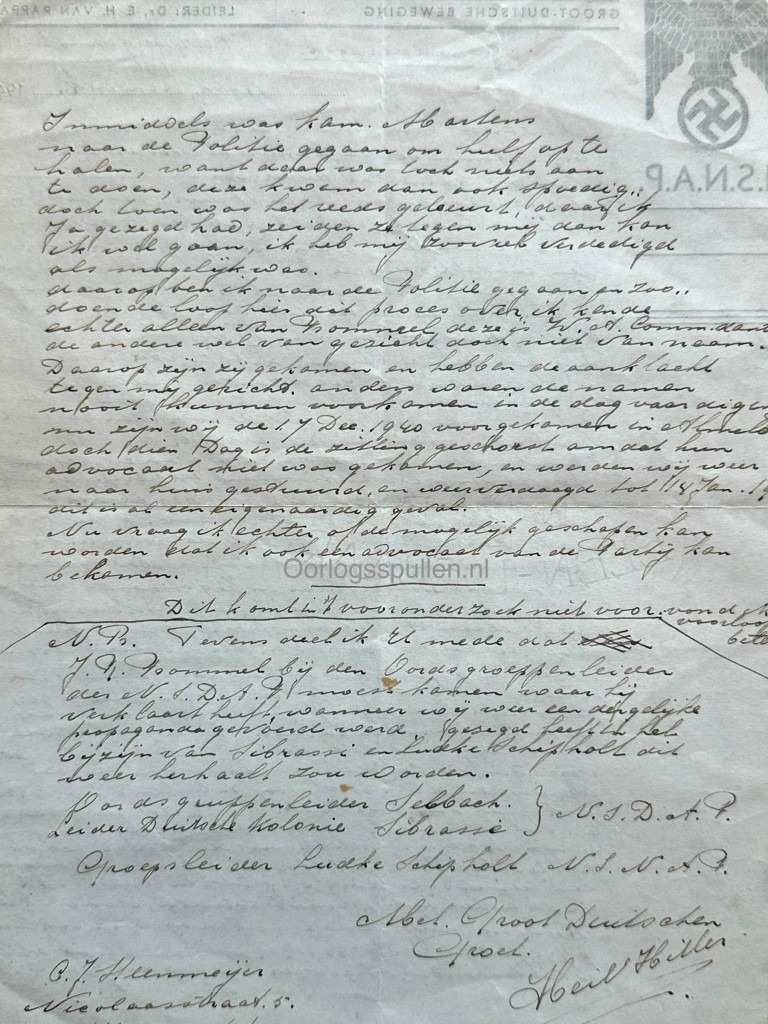 GROOT-DUITSCHE BEWEGING
LEIDER: Dr. E. H. VAN RAPPA
194
.S.N.A.P.
Inmiddels was kam. Martens
naar de Politie gegaan om hulp op te
halen, want daar was toch niets aan
te doen, deze kwam dan ook spoedig..
doch toen was het reeds gebeurt, daar ik
Ja gezegd had, zeiden ze tegen mij dan kan
ik wel gaan, ik heb mij zoorzeer verdedigd
als mogelijk was.
daarop ben ik naar de Politie gegaan en zoo..
doende loop hier dit proces over, ik kende
echter alleen van Bommel deze is W.A. Command
de andere wel van gezicht doch niet van naam.
Daarop zijn zij gekomen en hebben de aanklacht
tegen mij gericht. anders waren de namen
nooit kunnen voorkomen in de dagvaardigin
nu zijn wij de 17 Dec. 1940 voorgekomen in Almelo
doch dien Dag is de zitting geschorst omdat hun
advocaat niet was gekomen, en werden wij weer
naar huis gestuurd, en weer verdaagd tot 14 Jan. 19
dit is al een eigenaardig geval.
Nu vraag ik echter, of de mogelijk geschapen kan
worden dat ik ook een advocaat van de Partij kan
bekomen.
Oorlogsspullen.nl
Dit komt in 't vooronderzoek niet voor.
N.B. Tevens deel ik U mede dat
J.R. Bommel bij den Oordsgroeppenleider
der N.S.D.A.P. moest komen waar hij
verklaart heeft, wanneer wij weer een dergelijke
propaganda gevoerd werd, gezegd heeft in het
bijzijn van Sibrasse en Ludke Schipholt dit
weer herhaalt zou worden.
Oordsgruppenleider Selbach. } N.S.D.A.P.
Leider Duitsche Kolonie Sibrasse
Groepsleider Ludke Schipholt N.S.N.A.P.
Met Groot Duitschen
Groet.
Heil Hitler
C.J. Steenmeijer
Nicolaasstraat. 5.